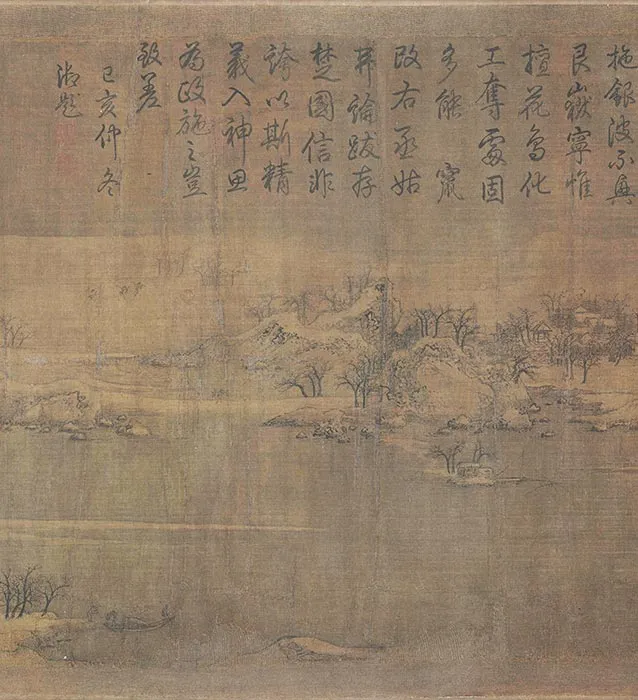 拖銀波不興
艮嶽寧惟
擅花鳥化
工奪處固
多能竄
改右丞姑
弗論跋存
楚國信非
誇以斯精
義入神思
為政施之豈
致差
己亥仲冬
御題